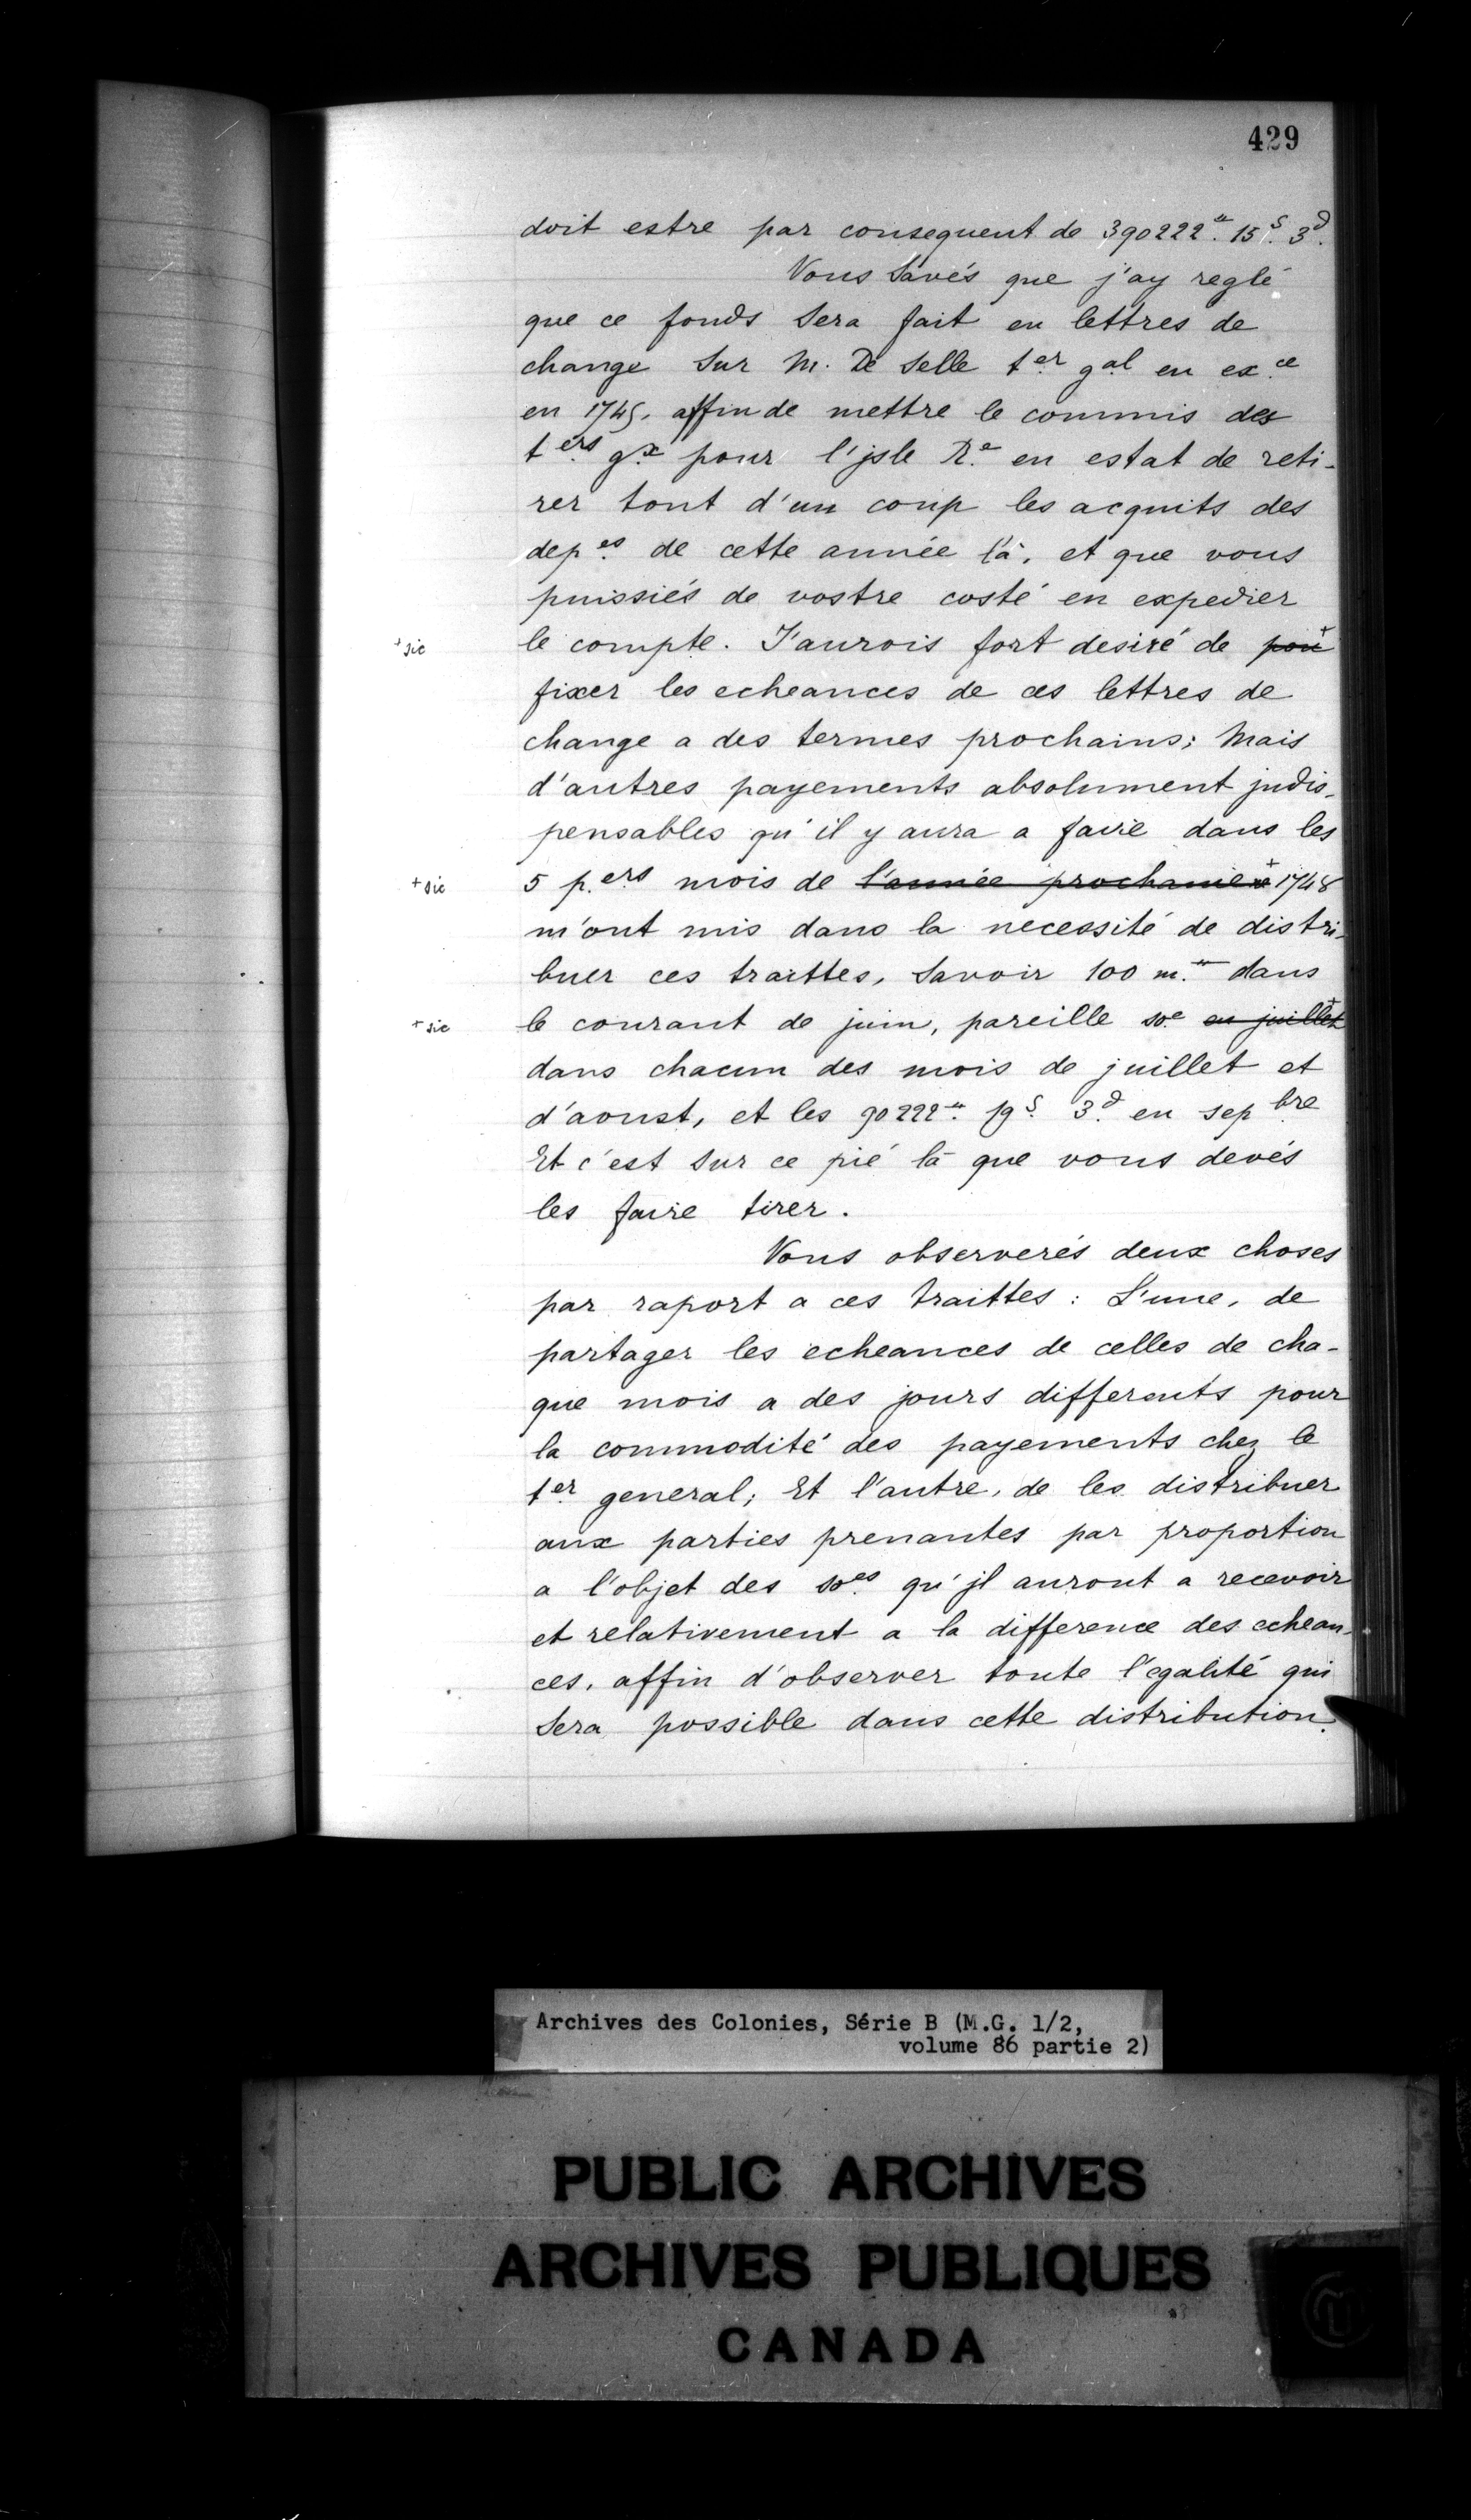 429
doit estre par consequent de 390222.ᵗᵗ 15.ˢ 3.ᵈ
Vous Savés que j'ay reglé
que ce fonds Sera fait en lettres de
change Sur M. De Selle t.ᵉʳ g.ᵃˡ en ex.ᶜᵉ
en 1745, affin de mettre le commis des
t.ᵉʳˢ g.ˣ pour l'jsle R.ᵉ en estat de reti-
rer tout d'un coup les acquits des
dep.ᵉˢ de cette année là, et que vous
puissiés de vostre costé en expedier
+ sic le compte. J'aurois fort desiré de ~~pou~~ +
fixer les echeances de ces lettres de
change a des termes prochains; Mais
d'autres payements absolument jndis-
pensables qu'il y aura a faire dans les
+ sic 5 p.ᵉʳˢ mois de ~~l'année prochaine~~ + 1748
m'ont mis dans la necessité de distri-
buer ces traittes, Savoir 100 m.ᵗᵗ dans
+ sic le courant de juin, pareille so.ᵉ ~~en juillet~~ +
dans chacun des mois de juillet et
d'aoust, et les 90222.ᵗᵗ 19.ˢ 3.ᵈ en sep.ᵇʳᵉ
Et c'est Sur ce pié là que vous devés
les faire tirer.
Vous observerés deux choses
par raport a ces traittes : L'une, de
partager les echeances de celles de cha-
que mois a des jours differents pour
la commodité des payements chez le
t.ᵉʳ general; Et l'autre, de les distribuer
aux parties prenantes par proportion
a l'objet des so.ᵉˢ qu'jl auront a recevoir
et relativement a la difference des echean-
ces, affin d'observer toute l'egalité qui
Sera possible dans cette distribution.
Archives des Colonies, Série B (M.G. 1/2,
volume 86 partie 2)
PUBLIC ARCHIVES
ARCHIVES PUBLIQUES
CANADA